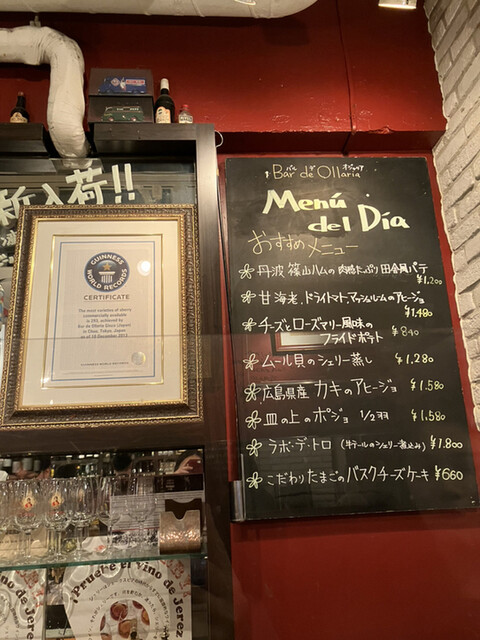 新入荷!!
GUINNESS
WORLD RECORDS
CERTIFICATE
The most varieties of sherry
commercially available
is 293, achieved by
Bar de Ollaria Ginza (Japan)
in Chuo, Tokyo, Japan
as of 10 December 2013
バル デ オジャリア
Bar de Ollaria
Menú
del Día
おすすめメニュー
丹波篠山ハムの肉感たっぷり田舎風パテ
¥1,200
甘海老、ドライトマト、マッシュルームのアヒージョ
¥1,480
チーズとローズマリー風味の
フライドポテト ¥840
ムール貝のシェリー蒸し ¥1,280
広島県産 カキのアヒージョ ¥1,580
皿の上のポジョ 1/2羽 ¥1,580
ラボ・デ・トロ (牛テールのシェリー煮込み) ¥1,800
こだわりたまごのバスクチーズケーキ ¥660
¡Pruebe el vino de Jerez